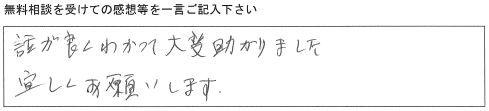 無料相談を受けての感想等を一言ご記入下さい
話が良くわかって大変助かりました
宜しくお願いします.